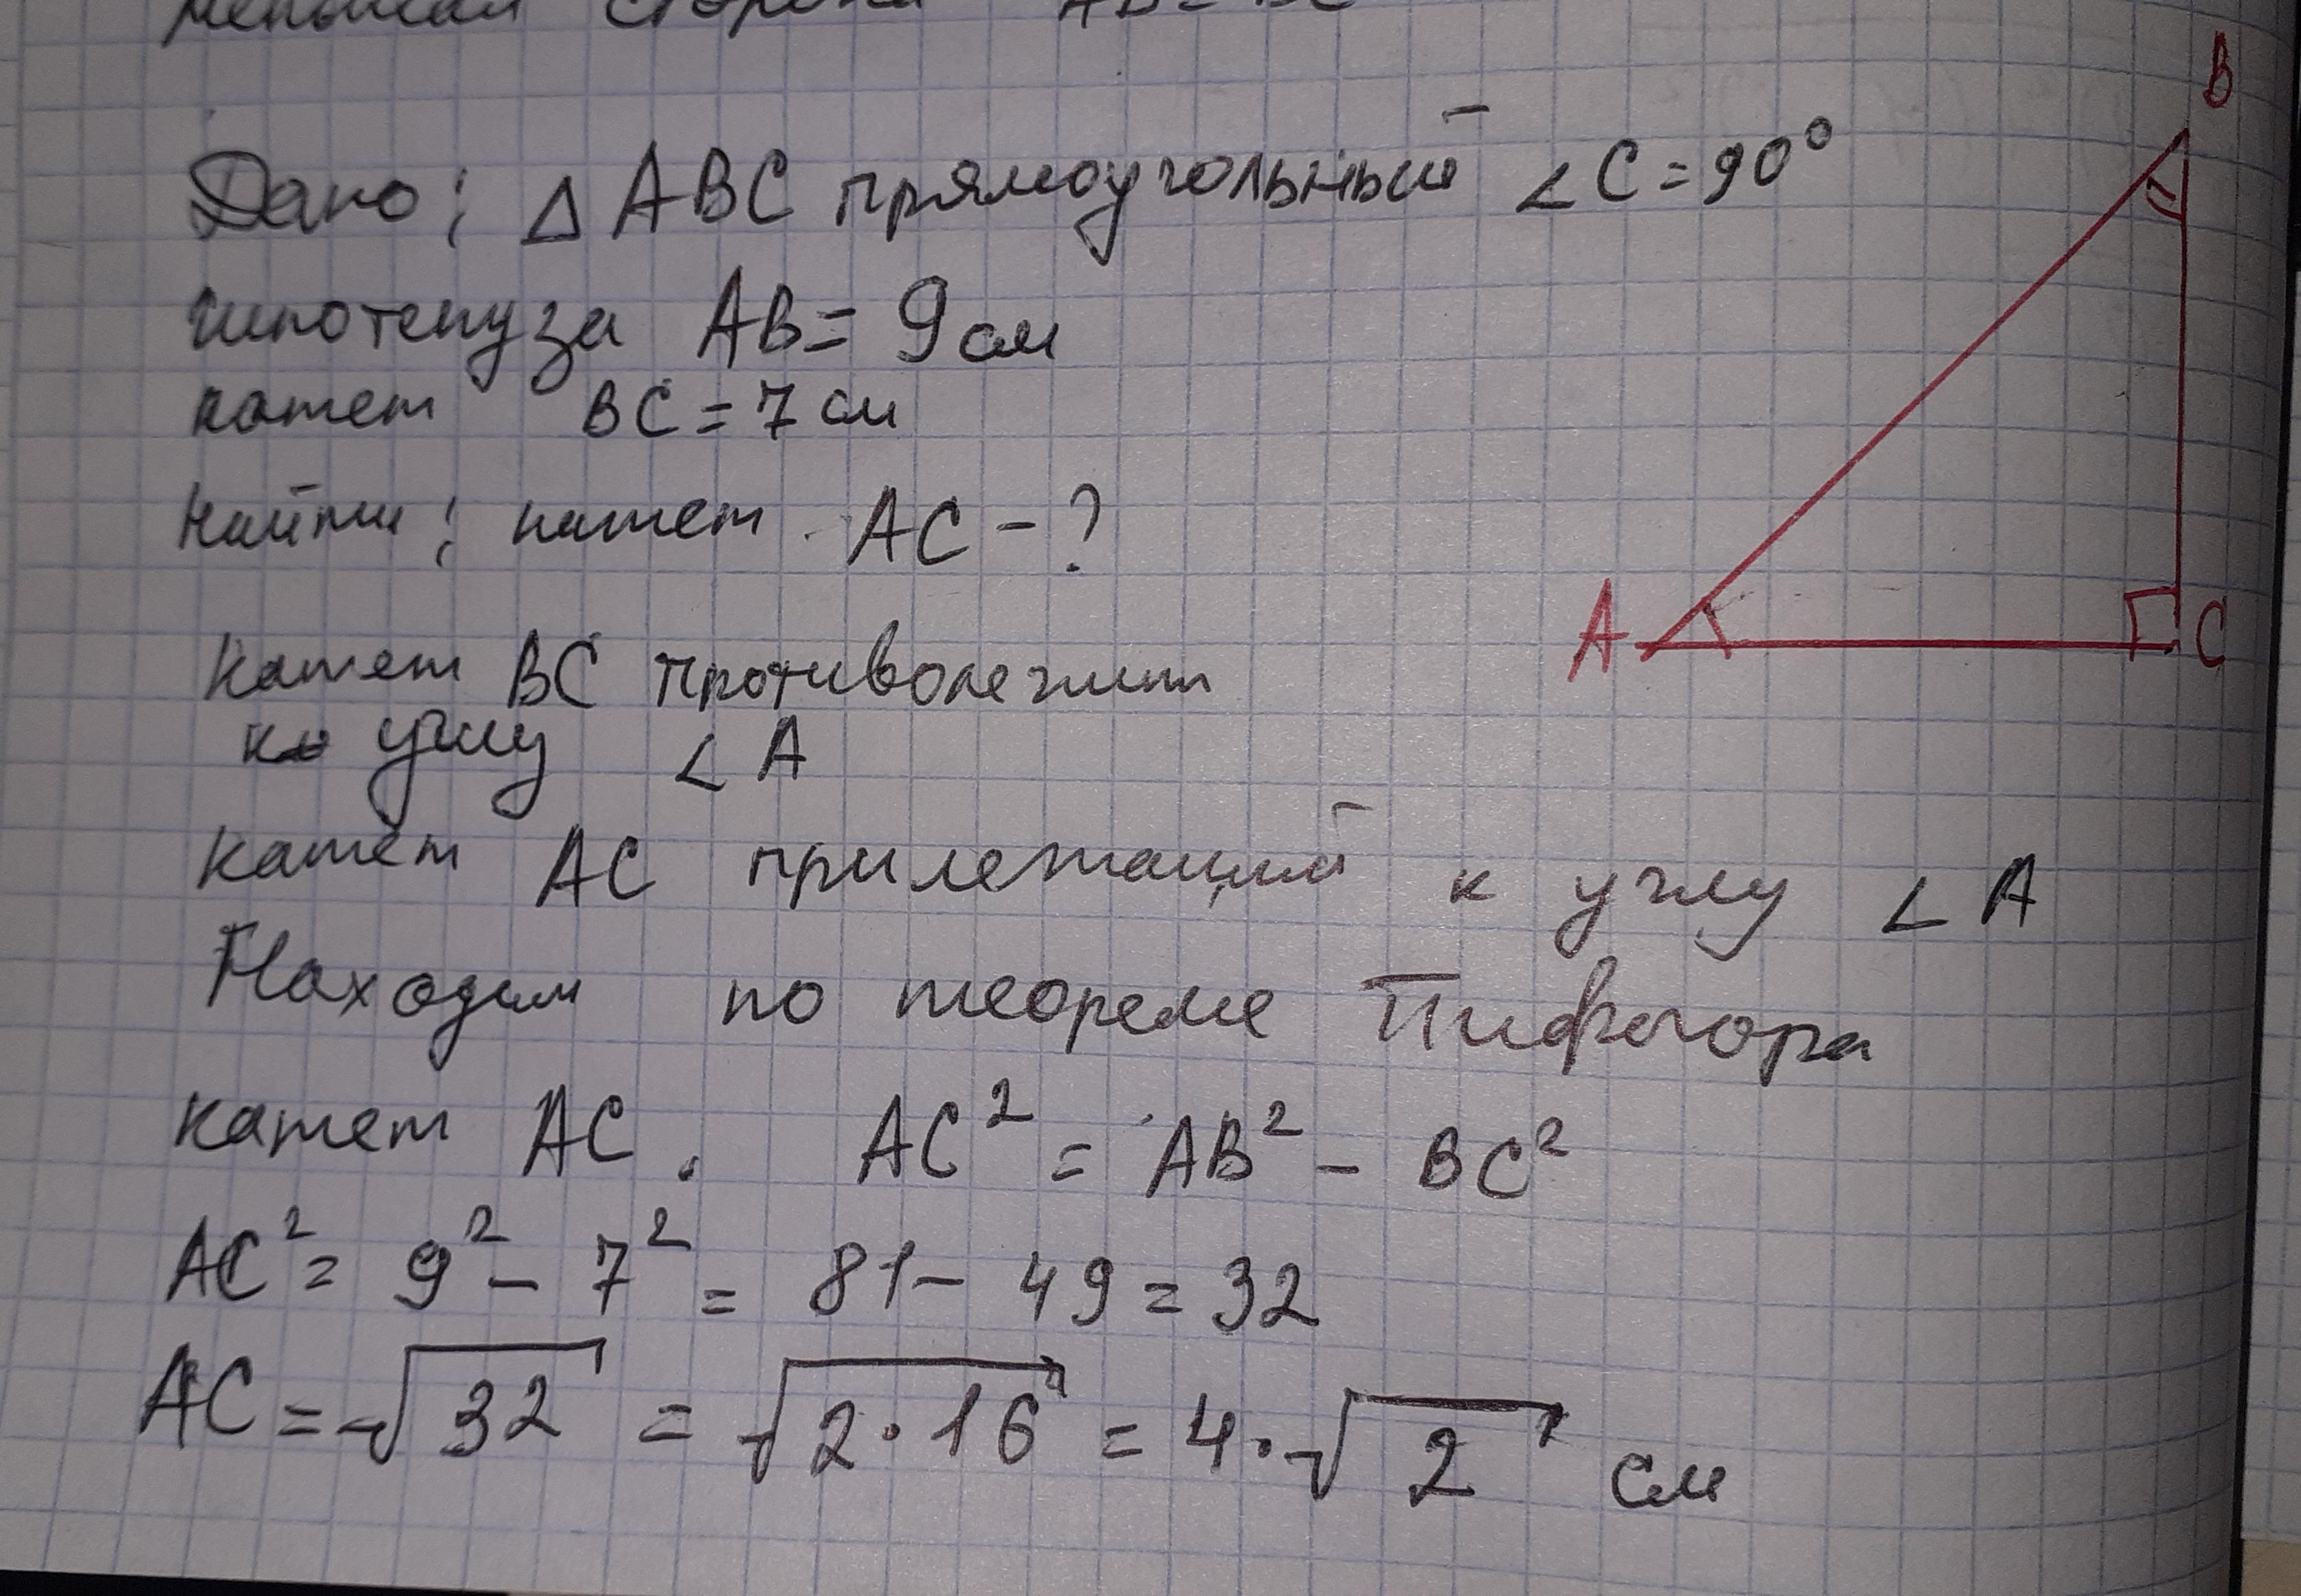 меньшая сторона AB = BC
Дано: △ ABC прямоугольный ∠C = 90°
гипотенуза AB = 9 см
катет BC = 7 см
Найти: катет AC - ?
Катет BC противолежит
к углу ∠A
катет AC прилежащий к углу ∠A
Находим по теореме Пифагора
катет AC. AC² = AB² - BC²
AC² = 9² - 7² = 81 - 49 = 32
AC = √32 = √2·16 = 4·√2 см
B
A
C